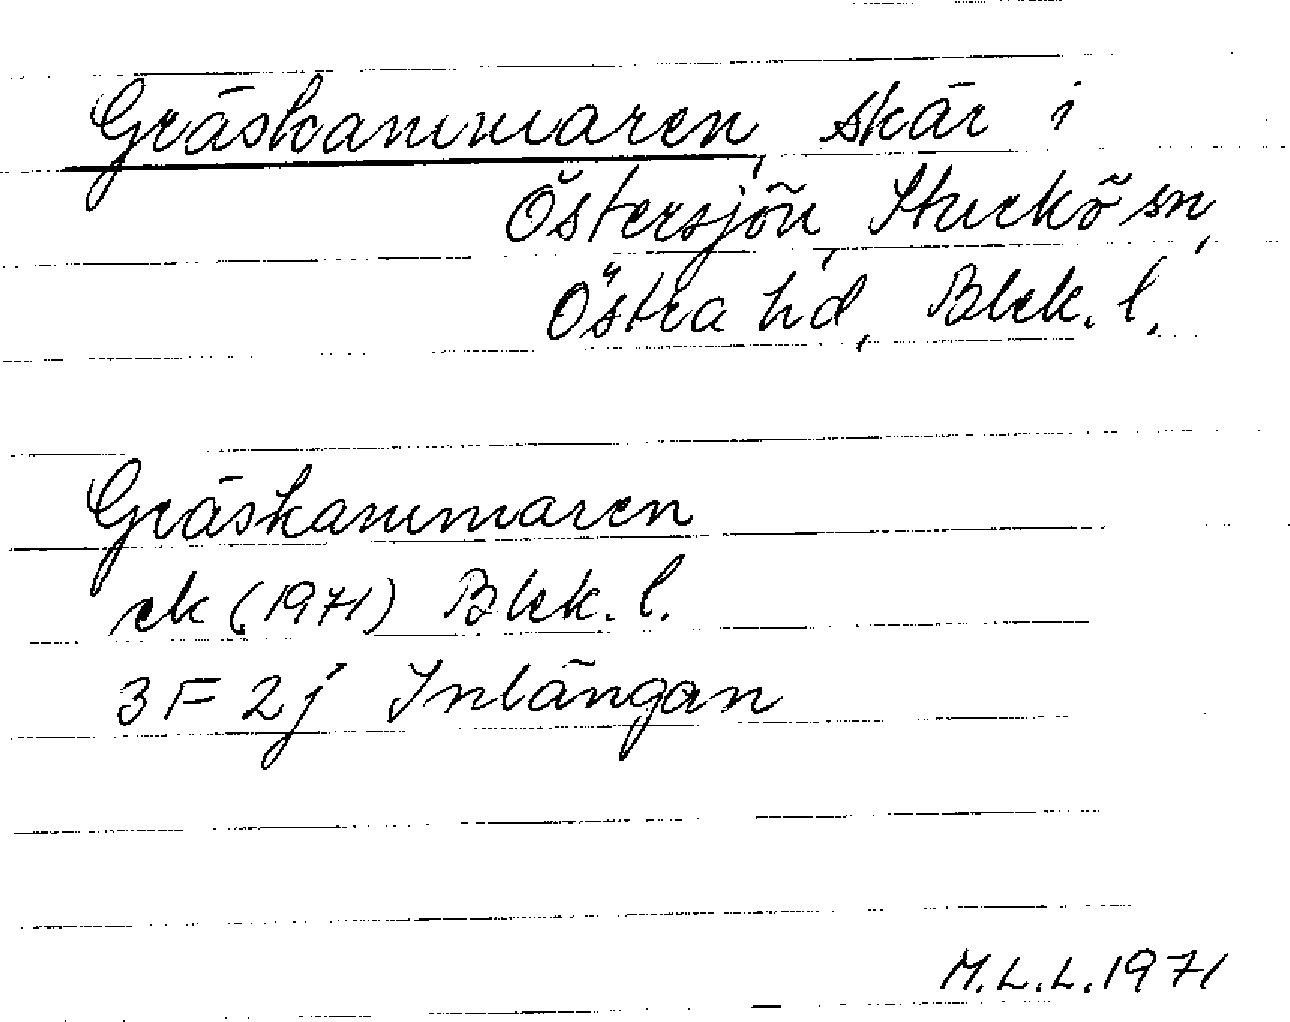 Gräskammaren, skär i
Östersjön, Sturkö sn,
Östra hd, Blek. l.
Gräskammaren
ek (1971) Blek. l.
3F 2j Inlängan
M.L.L. 1971